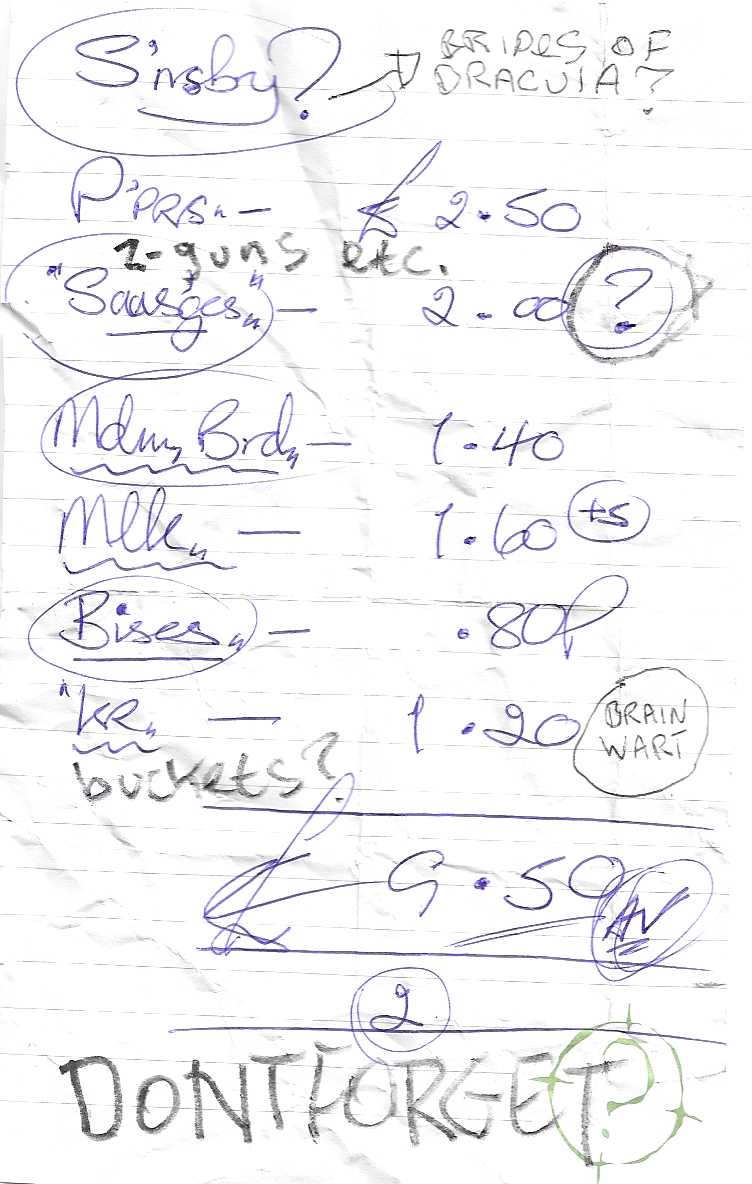 S'nsby?
BRIDES OF
DRACULA?
P'PRS„ — £ 2.50
2-guns etc.
"Sausges„" — 2.00 ?
Mdm, Brd„ — 1.40
Mlk„ — 1.60 +s
Bises„ — .80p
"KR„ — 1.20
BRAIN
WART
buckets?
£ 9.50
2
DONT FORGET ?